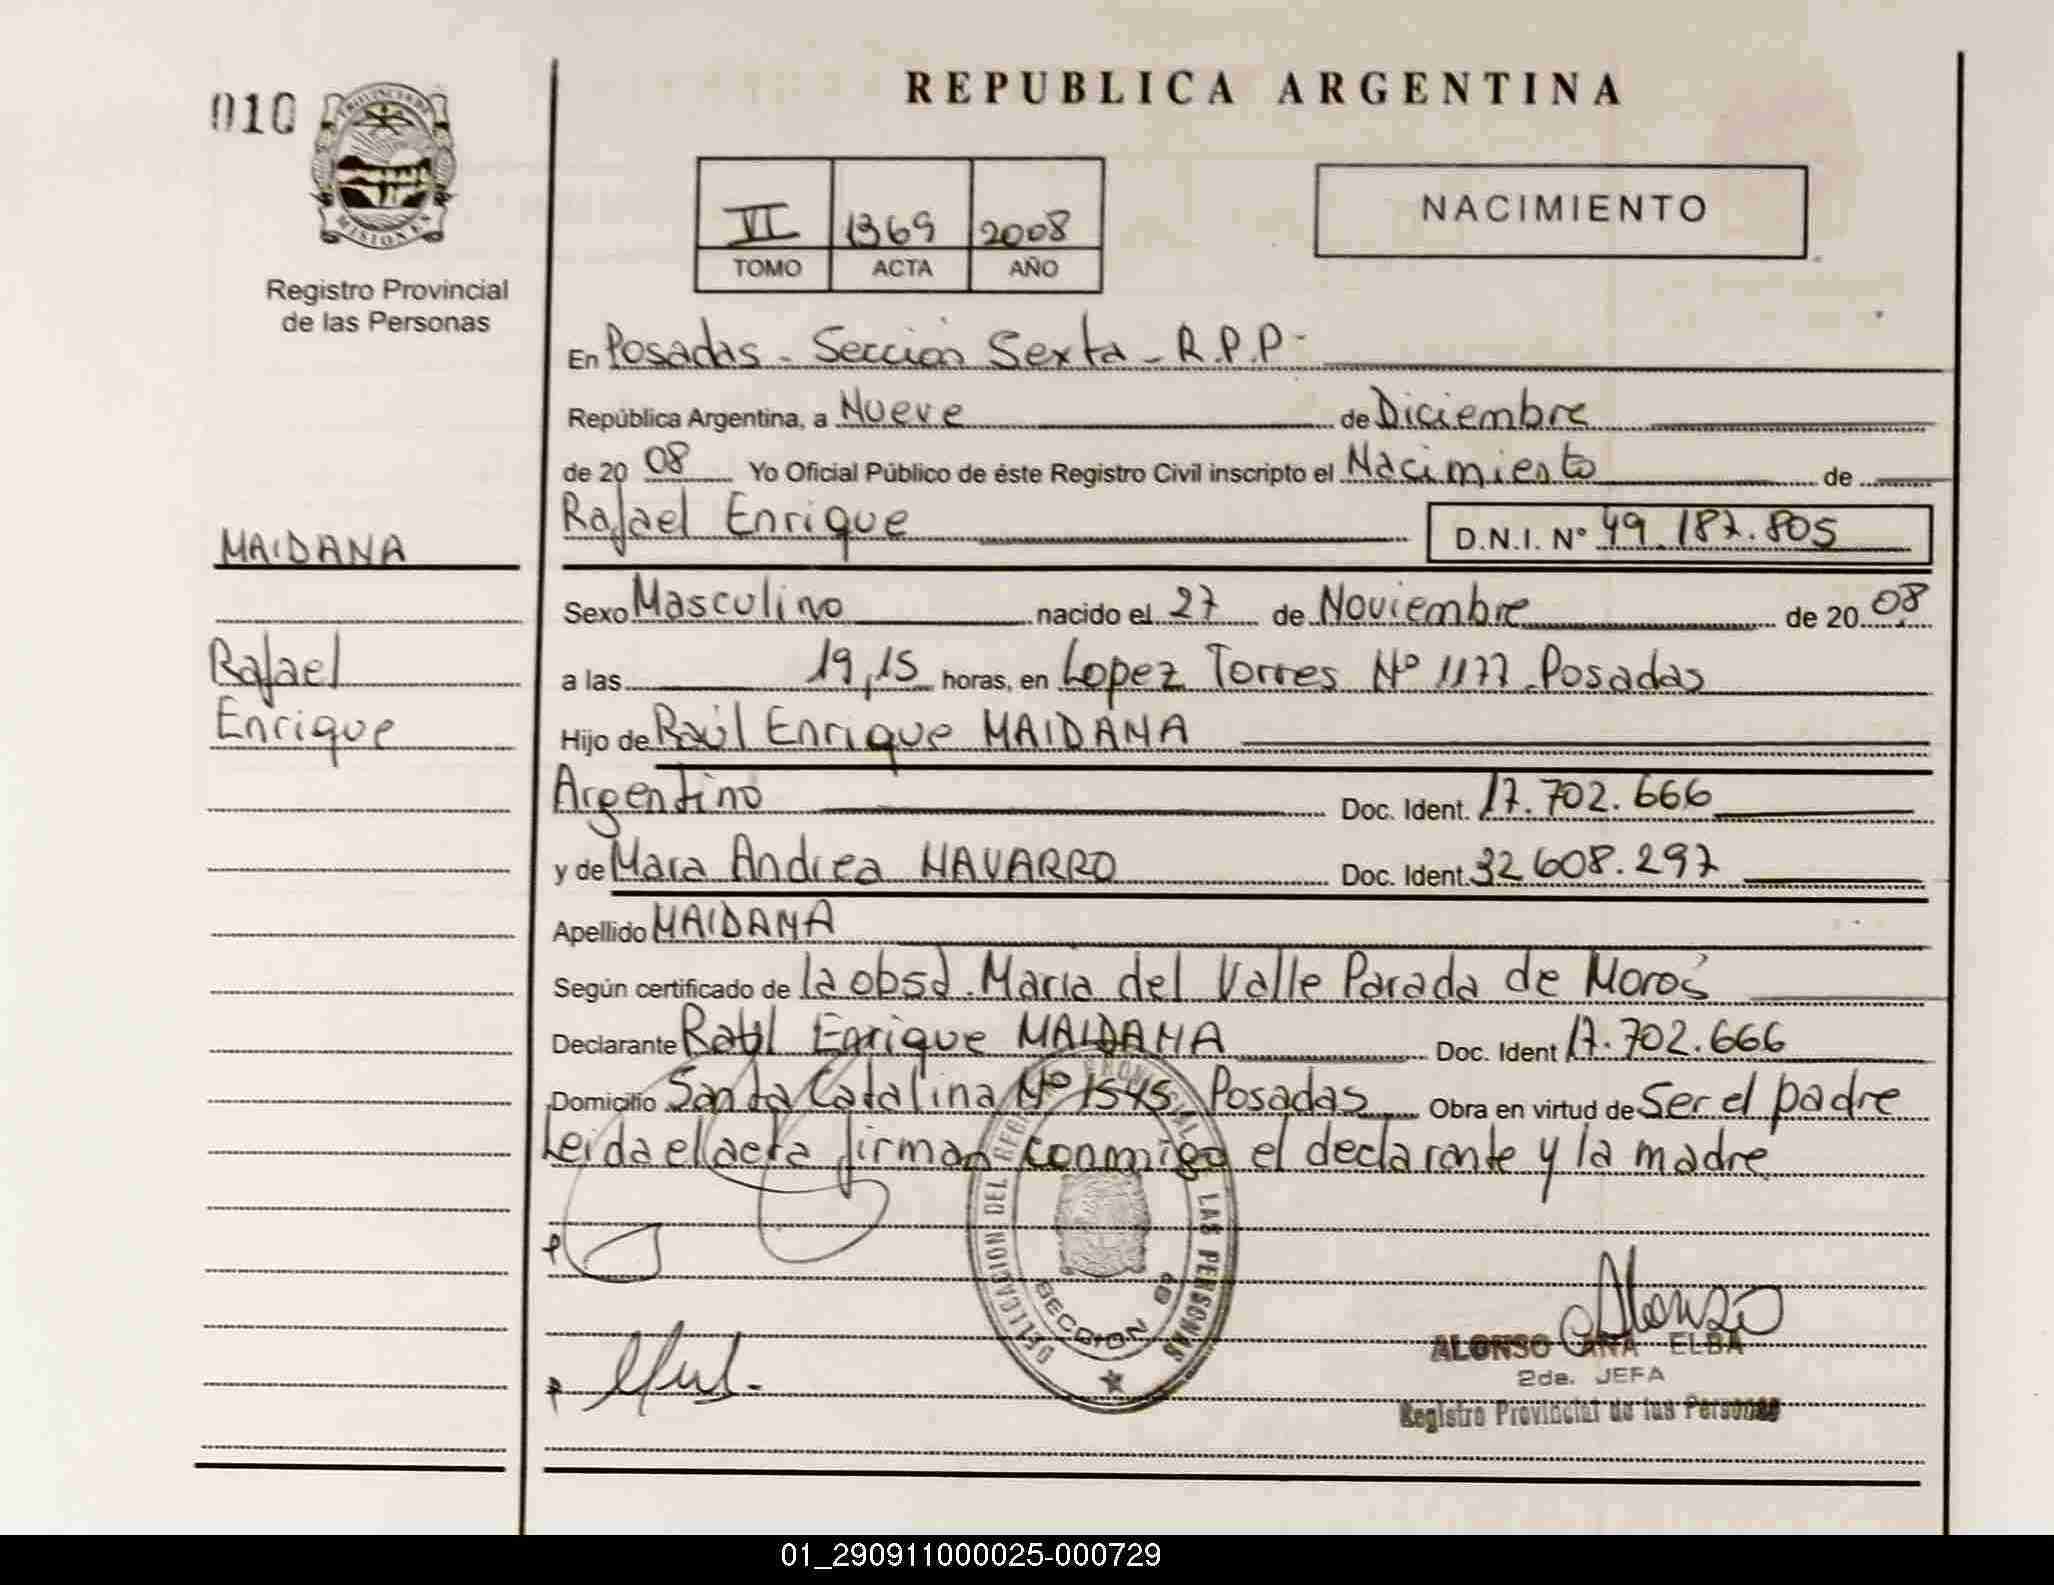 REPUBLICA ARGENTINA
010
PROVINCIA DE
MISIONES
Registro Provincial
de las Personas
VI 1369 2008
TOMO ACTA AÑO
NACIMIENTO
En Posadas - Sección Sexta - R.P.P-
República Argentina, a Nueve de Diciembre
de 2008 Yo Oficial Público de éste Registro Civil inscripto el Nacimiento de
Rafael Enrique D.N.I. Nº 49.187.805
MAIDANA
Rafael
Enrique
Sexo Masculino nacido el 27 de Noviembre de 2008
a las 19,15 horas, en Lopez Torres Nº 1177 - Posadas
Hijo de Raúl Enrique MAIDANA
Argentino Doc. Ident. 17.702.666
y de Mara Andrea NAVARRO Doc. Ident. 32608.297
Apellido MAIDANA
Según certificado de la obsd. Maria del Valle Parada de Moros
Declarante Raúl Enrique MAIDANA Doc. Ident 17.702.666
Domicilio Santa Catalina Nº 1545 - Posadas Obra en virtud de Ser el padre
Leida el acta firman conmigo el declarante y la madre
DELEGACION DEL REGISTRO PROVINCIAL DE LAS PERSONAS
SECCION 6ª
Alonso
ALONSO ANA ELBA
2da. JEFA
Registro Provincial de las Personas
01_290911000025-000729